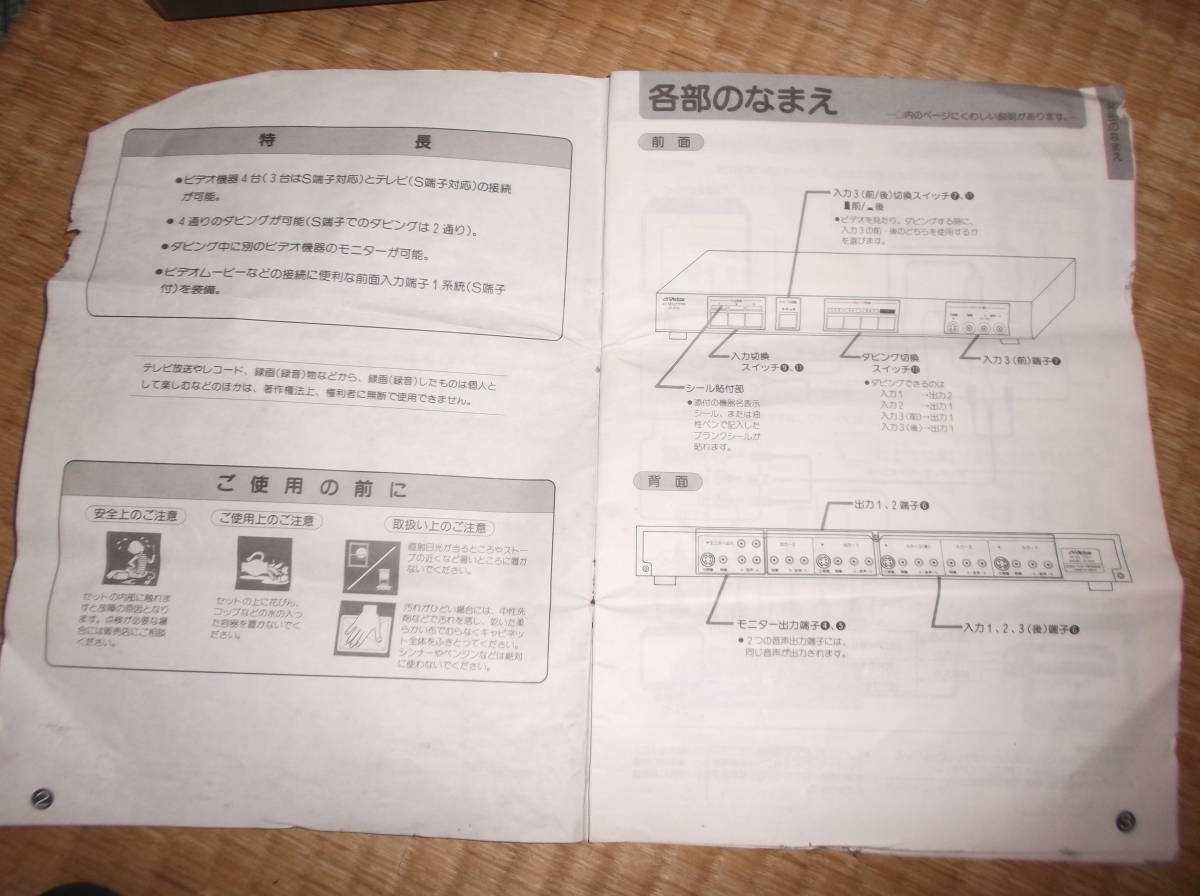 特長
●ビデオ機器4台(3台はS端子対応)とテレビ(S端子対応)の接続
が可能。
●4通りのダビングが可能(S端子でのダビングは2通り)。
●ダビング中に別のビデオ機器のモニターが可能。
●ビデオムービーなどの接続に便利な前面入力端子1系統(S端子
付)を装備。
テレビ放送やレコード、録画(録音)物などから、録画(録音)したものは個人と
して楽しむなどのほかは、著作権法上、権利者に無断で使用できません。
ご使用の前に
安全上のご注意
セットの内部に触れま
すと故障の原因となり
ます。点検が必要な場
合には販売店にご相談
ください。
ご使用上のご注意
セットの上に花びん、
コップなどの水の入っ
た容器を置かないでく
ださい。
取扱い上のご注意
直射日光が当るところやストー
ブの近くなど暑いところに置か
ないでください。
汚れがひどい場合には、中性洗
剤などで汚れを落し、乾いた柔
らかい布でむらなくキャビネッ
ト全体をふきとってください。
シンナーやベンジンなどは絶対
に使わないでください。
2
各部のなまえ
—○内のページにくわしい説明があります。—
のなまえ
前面
入力3(前/後)切換スイッチ❼、⓫
前/ 後
●ビデオを見たり、ダビングする時に、
入力3の前・後のどちらを使用するか
を選びます。
Victor
入力切換
スイッチ❾、⓫
ダビング切換
スイッチ❿
●ダビングできるのは
入力1 →出力2
入力2 →出力1
入力3(前)→出力1
入力3(後)→出力1
入力3(前)端子❼
シール貼付部
●添付の機器名表示
シール、または油
性ペンで記入した
ブランクシールが
貼れます。
背面
出力1、2端子❻
Victor
モニター出力端子❹、❺
●2つの音声出力端子には、
同じ音声が出力されます。
入力1、2、3(後)端子❻
3